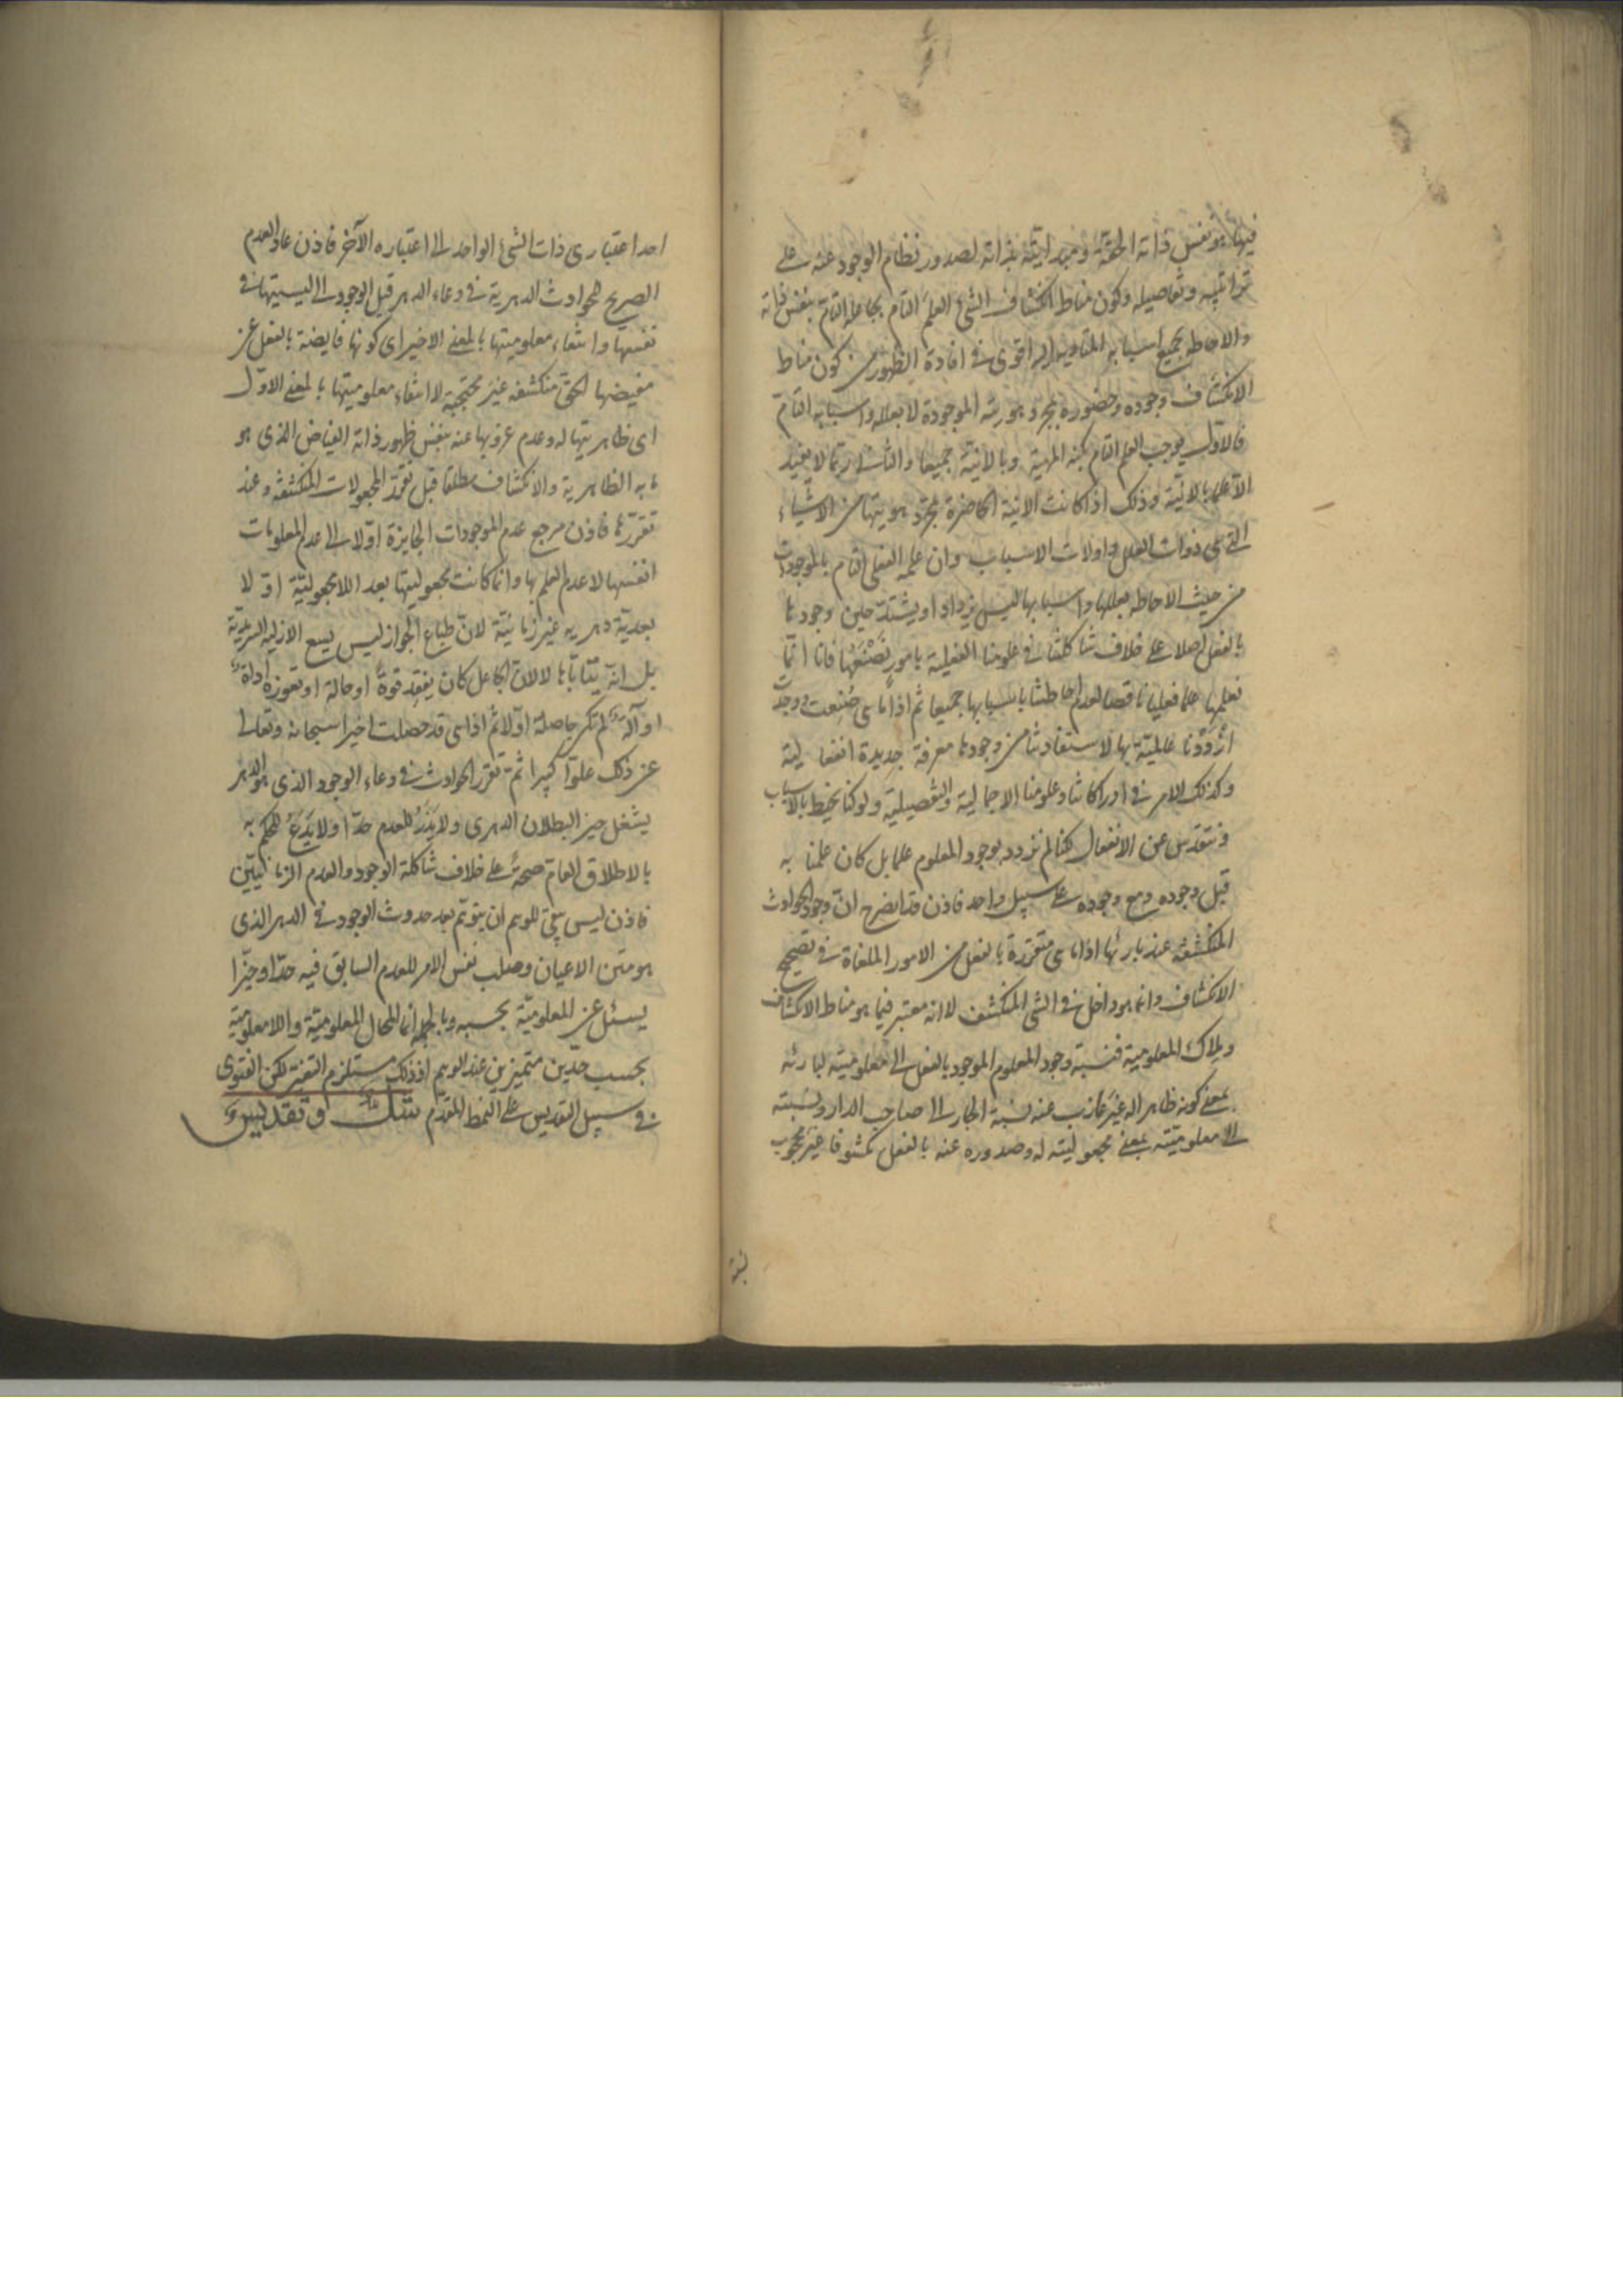 فيها هو نفس ذاته الحقة ومبدأيته بذاته لصدور نظام الوجود عنه على
تراتيبه وتفاصيله وكون مناط انكشاف الشئ العلم التام بجاعله التام بنفس ذاته
والاحاطه بجميع اسبابه المتاديه اليه اقوى في افادة الظهور من كون مناط
الانكشاف وجوده وحضوره بمجرد هويته الموجودة لا بعلله واسبابه التامة
فالاول يوجب العلم التام بكنه المهية وبالانية جميعا والثاني ربما لا يفيد
الا علما بالانية وذلك اذا كانت الانية الحاضرة بمجرد هويتها من الاشياء
التي هي ذوات العلل واولات الاسباب وان علمه الفعلي التام بالموجودات
من حيث الاحاطه بعللها واسبابها ليس يزداد او يشتد حين وجودها
بالفعل اصلا على خلاف شاكلتنا في علومنا الفعلية بامور نصنعها فانا انما
نعلمها علما فعليا ناقصا لعدم احاطتنا باسبابها جميعا ثم اذا ما هي صنعت ووجدت
ازددنا عالمية بها لاستفادتنا من وجودها معرفة جديدة انفعالية
وكذلك الامر في ادراكاتنا وعلومنا الاجمالية والتفصيلية ولو كنا نحيط بالاسباب
ونتقدس عن الانفعال لكنا لم نزدد بوجود المعلوم علما بل كان علمنا به
قبل وجوده ومع وجوده على سبيل واحد فاذن قد اتضح ان وجود الحوادث
المنكشفة عند بارئها اذا ما هي متقررة بالفعل من الامور الملغاة في تصحيح
الانكشاف وانما هو داخل في الشئ المنكشف لا انه معتبر فيما هو مناط الانكشاف
وملاك المعلومية فنسبة وجود المعلوم الموجود بالفعل الى معلوميته لبارئه
بمعنى كونه ظاهرا له غير عازب عنه نسبة الجار الى صاحب الدار ونسبته
الى معلوميته بمعنى مجعوليته له وصدوره عنه بالفعل مكشوفا غير محجوب
نسبة
احد اعتباري ذات الشئ الواحد الى اعتباره الآخر فاذن عاد العدم
الصريح للحوادث الدهرية في وعاء الدهر قبل الوجود الى ليسيتها في
نفسها وانتفاء معلوميتها بالمعنى الاخير اي كونها فايضة بالفعل عن
مفيضها الحق منكشفه غير محتجبه لا انتفاء معلوميتها بالمعنى الاول
اي ظاهريتها له وعدم عزوبها عنه بنفس ظهور ذاته الفياض الذي هو
ما به الظاهرية والانكشاف مطلقا قبل تقرر المجعولات المنكشفه وعند
تقررها فاذن مرجع عدم الموجودات الجايزة اولا الى عدم المعلومات
انفسها لا عدم العلم بها وانما كانت مجعوليتها بعد اللامجعولية اولا
بعدية دهريه غير زمانية لان طباع الجواز ليس يسع الازليه السرمدية
بل انه يتاباها لا لان الجاعل كان يفقد قوة او حالة او تعوزه اداة
او آلة لم تكن حاصلة اولا ثم اذا هي قد حصلت اخيرا سبحانه وتعالى
عن ذلك علوا كبيرا ثم تقرر الحوادث في وعاء الوجود الذي هو الدهر
يشغل حيز البطلان الدهري ولا يذر للعدم حدا ولا يدع للحكم به
بالاطلاق العام صحة على خلاف شاكلة الوجود والعدم الزمانيين
فاذن ليس يبقى للوهم ان يتوهم بعد حدوث الوجود في الدهر الذي
هو متن الاعيان وصلب نفس الامر للعدم السابق فيه حدا وحيزا
يسئل عن المعلومية بحسبه وبالجمله انما المحال المعلومية واللامعلومية
بحسب حدين متميزين عند الوهم اذ ذلك مستلزم التغير لكن الفتوى
في سبيل التقديس على النمط المقدم شك وتقديس